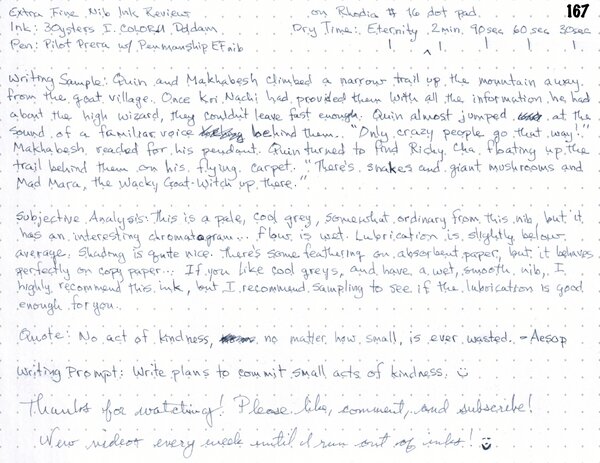 Extra Fine Nib Ink Review on Rhodia #16 dot pad. 167
Ink: 3Oysters I.COLOR.U Doldam Dry Time: Eternity 2min. 90sec 60sec 30sec
Pen: Pilot Prera w/ Penmanship EF nib
Writing Sample: Quin and Makhabesh climbed a narrow trail up the mountain away
from the goat village. Once Kri Nachi had provided them with all the information he had
about the high wizard, they couldn't leave fast enough. Quin almost jumped at the
sound of a familiar voice behind them. "Only crazy people go that way."
Makhabesh reached for his pendant. Quin turned to find Richy Cha floating up the
trail behind them on his flying carpet. "There's snakes and giant mushrooms and
Mad Mara, the Wacky Goat-Witch up there."
Subjective Analysis: This is a pale, cool grey, somewhat ordinary from this nib, but it
has an interesting chromatogram... Flow is wet. Lubrication is slightly below
average. Shading is quite nice. There's some feathering on absorbent paper, but it behaves
perfectly on copy paper... If you like cool greys, and have a wet, smooth nib, I
highly recommend this ink, but I recommend sampling to see if the lubrication is good
enough for you.
Quote: No act of kindness, no matter how small, is ever wasted. - Aesop
Writing Prompt: Write plans to commit small acts of kindness.
Thanks for watching! Please like, comment, and subscribe!
New videos every week until I run out of inks!